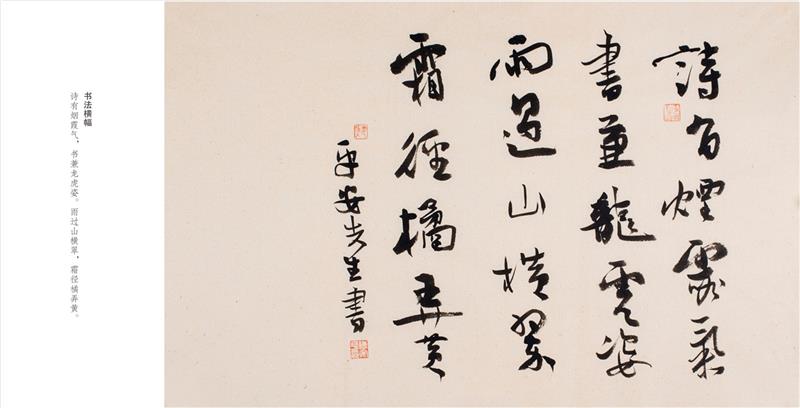 书法横幅
诗有烟霞气，书兼龙虎姿。雨过山横翠，霜径橘弄黄。
詩有煙霞氣
書兼龍虎姿
雨過山横翠
霜徑橘弄黄
平安先生書